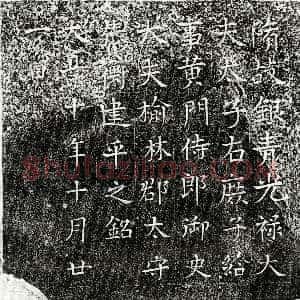 隋故銀青光禄大
夫太子右庶子給
事黄門侍郎御史
大夫榆林郡太守
建平之銘
大 十年十月廿
一日
shufaziliao.com